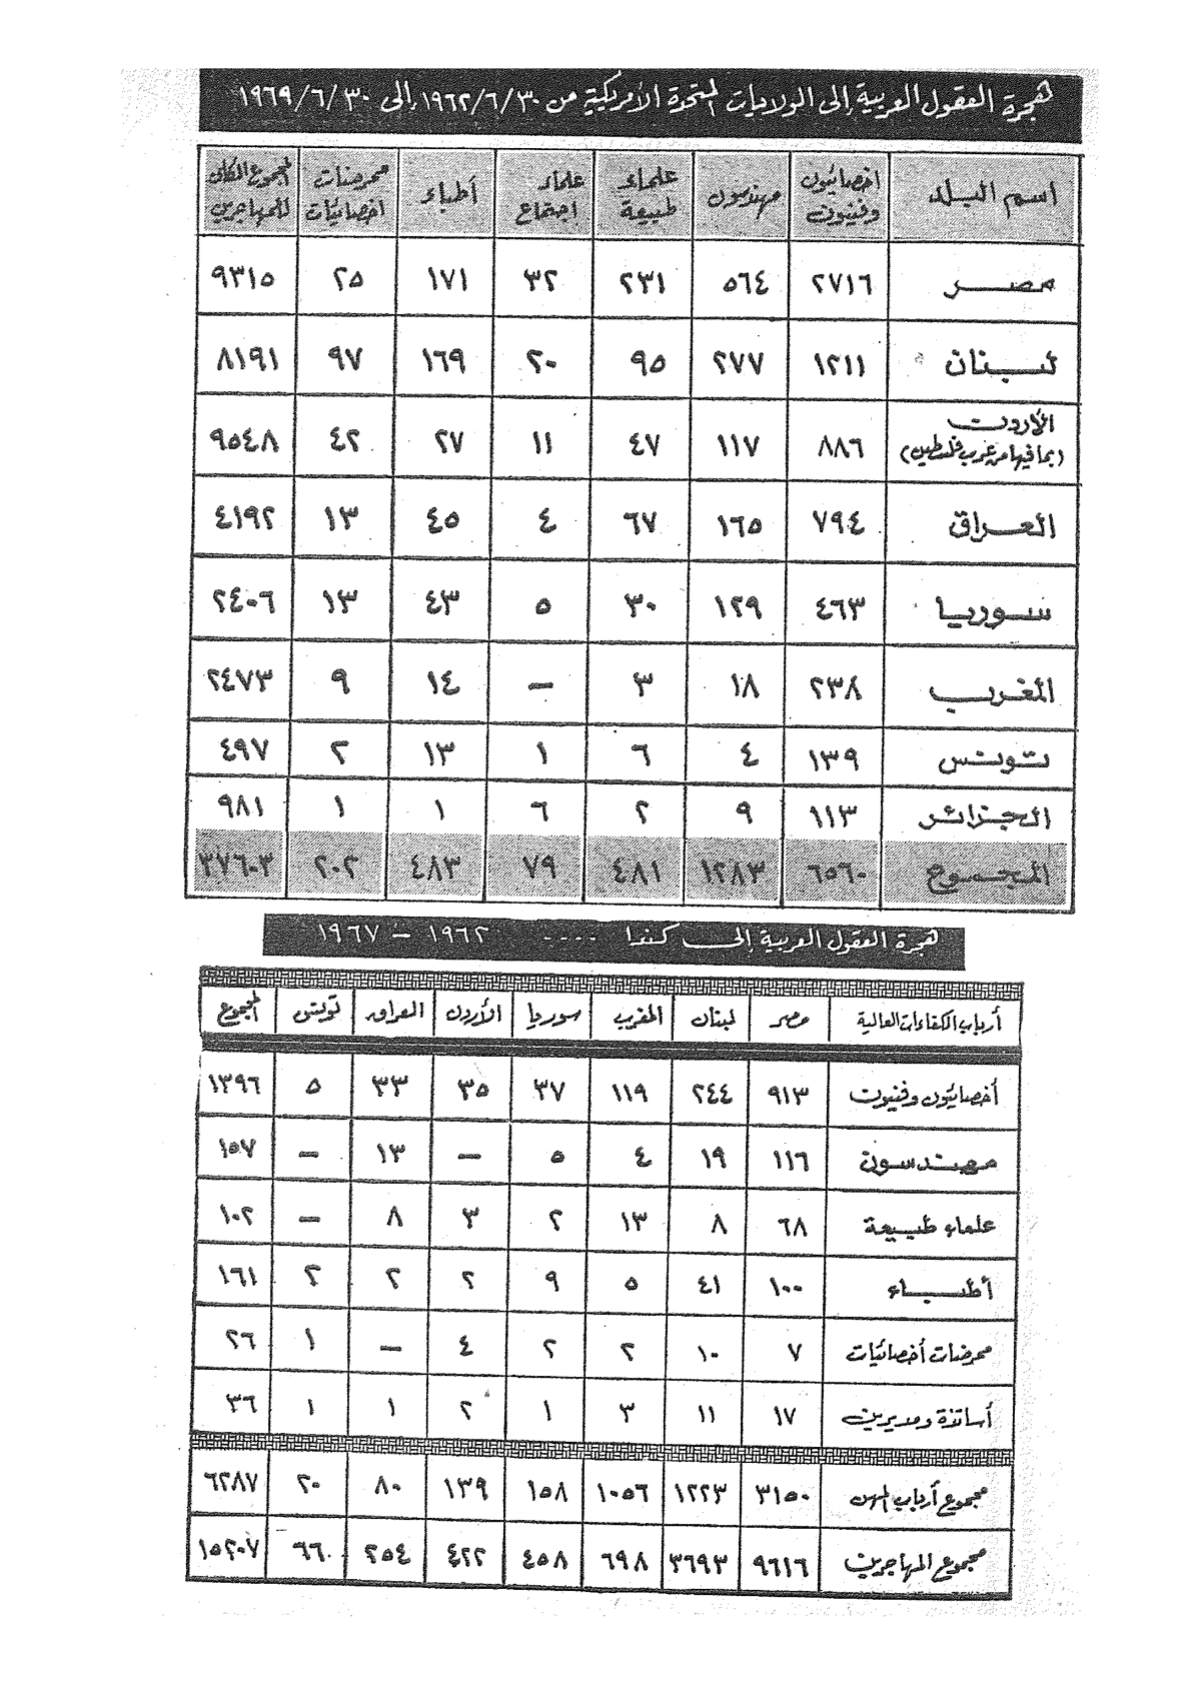 هجرة العقول العربية إلى الولايات المتحدة الأمريكية من ١٩٦٢/٦/٣٠ إلى ١٩٦٩/٦/٣٠
اسم البلد اخصائيون وفنيون مهندسون علماء طبيعة علماء اجتماع أطباء ممرضات اخصائيات المجموع الكلى للمهاجرين
مصر ٢٧١٦ ٥٦٤ ٢٣١ ٣٢ ١٧١ ٢٥ ٩٣١٥
لبنان ١٢١١ ٢٧٧ ٩٥ ٢٠ ١٦٩ ٩٧ ٨١٩١
الأردن (بما فيها من عرب فلسطين) ٨٨٦ ١١٧ ٤٧ ١١ ٢٧ ٤٢ ٩٥٤٨
العراق ٧٩٤ ١٦٥ ٦٧ ٤ ٤٥ ١٣ ٤١٩٢
سوريا ٤٦٣ ١٢٩ ٣٠ ٥ ٤٣ ١٣ ٢٤٠٦
المغرب ٢٣٨ ١٨ ٣ — ١٤ ٩ ٢٤٧٣
تونس ١٣٩ ٤ ٦ ١ ١٣ ٢ ٤٩٧
الجزائر ١١٣ ٩ ٢ ٦ ١ ١ ٩٨١
المجموع ٦٥٦٠ ١٢٨٣ ٤٨١ ٧٩ ٤٨٣ ٢٠٢ ٣٧٦٠٣
هجرة العقول العربية إلى كندا .... ١٩٦٢ – ١٩٦٧
أرباب الكفاءات العالية مصر لبنان المغرب سوريا الأردن العراق تونس المجموع
أخصائيون وفنيون ٩١٣ ٢٤٤ ١١٩ ٣٧ ٣٥ ٣٣ ٥ ١٣٩٦
مهندسون ١١٦ ١٩ ٤ ٥ — ١٣ — ١٥٧
علماء طبيعة ٦٨ ٨ ١٣ ٢ ٣ ٨ — ١٠٢
أطباء ١٠٠ ٤١ ٥ ٩ ٢ ٢ ٢ ١٦١
ممرضات أخصائيات ٧ ١٠ ٢ ٢ ٤ — ١ ٢٦
أساتذة ومديرين ١٧ ١١ ٣ ١ ٢ ١ ١ ٣٦
مجموع أرباب المهن ٣١٥٠ ١٢٢٣ ١٠٥٦ ١٥٨ ١٣٩ ٨٠ ٢٠ ٦٢٨٧
مجموع المهاجرين ٩٦١٦ ٣٦٩٣ ٦٩٨ ٤٥٨ ٤٢٢ ٢٥٤ ٦٦ ١٥٢٠٧